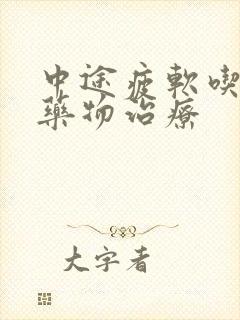 中途疲軟喫
藥物治療
大字者